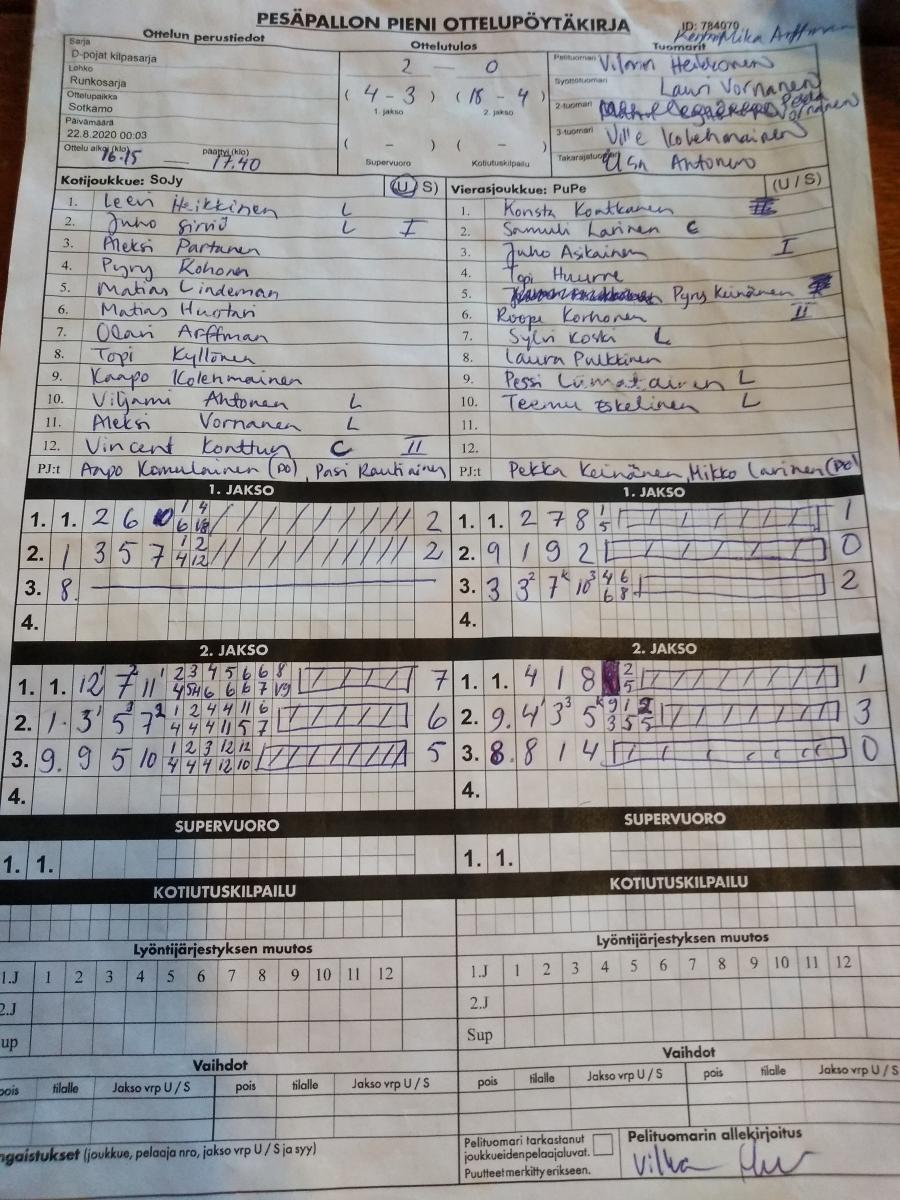 PESÄPALLON PIENI OTTELUPÖYTÄKIRJA
ID: 784070
Mika Arffman
Ottelun perustiedot
Ottelutulos
Tuomarit
Sarja
D-pojat kilpasarja
Lohko
Runkosarja
Ottelupaikka
Sotkamo
Päivämäärä
22.8.2020 00:03
Ottelu alkoi (klo) 16.15 — päättyi (klo) 17.40
2 — 0
( 4 - 3 ) ( 18 - 4 )
1. jakso 2. jakso
( - ) ( - )
Supervuoro Kotiutuskilpailu
Pelituomari Heikkonen
Syöttötuomari Lauri Vornanen
2-tuomari Pekka Vornanen
3-tuomari Ville Kolehmainen
Takarajatuomari Antonen
Kotijoukkue: SoJy (U/S)
1. Leevi Heikkinen L
2. Juho Sirviö L I
3. Aleksi Partanen
4. Pyry Kohonen
5. Matias Lindeman
6. Matias Huotari
7. Olavi Arffman
8. Topi Kyllönen
9. Kaapo Kolehmainen
10. Viljami Antonen L
11. Aleksi Vornanen L
12. Vincent Konttun C II
PJ:t Aapo Komulainen (PO), Pasi Rautiainen
Vierasjoukkue: PuPe (U / S)
1. Konsta Kontkanen
2. Samuli Larinen C
3. Juho Asikainen I
4. Topi Huurre
5. Pyry Keinänen
6. Roope Korhonen II
7. Sylvi Koski L
8. Laura Pulkkinen
9. Pessi Liimatainen L
10. Teemu Eskelinen L
11.
12.
PJ:t Pekka Keinänen, Mikko Larinen (PO)
1. JAKSO
1. 1. 2 6 2
2. 1 3 5 7 2
3. 8.
4.
1. JAKSO
1. 1. 2 7 8 1
2. 9 1 9 2 0
3. 3 3 7 10 2
4.
2. JAKSO
1. 1. 12 7 11 7
2. 1. 3 5 7 6
3. 9. 9 5 10 5
4.
2. JAKSO
1. 1. 4 1 8 1
2. 9. 4 3 5 3
3. 8. 8 1 4 0
4.
SUPERVUORO
1. 1.
SUPERVUORO
1. 1.
KOTIUTUSKILPAILU
KOTIUTUSKILPAILU
Lyöntijärjestyksen muutos
1.J 1 2 3 4 5 6 7 8 9 10 11 12
2.J
up
Lyöntijärjestyksen muutos
1.J 1 2 3 4 5 6 7 8 9 10 11 12
2.J
Sup
Vaihdot
pois tilalle Jakso vrp U / S pois tilalle Jakso vrp U / S
Vaihdot
pois tilalle Jakso vrp U / S pois tilalle Jakso vrp U / S
ngaistukset (joukkue, pelaaja nro, jakso vrp U / S ja syy)
Pelituomari tarkastanut
joukkueiden pelaajaluvat.
Puutteet merkitty erikseen.
Pelituomarin allekirjoitus